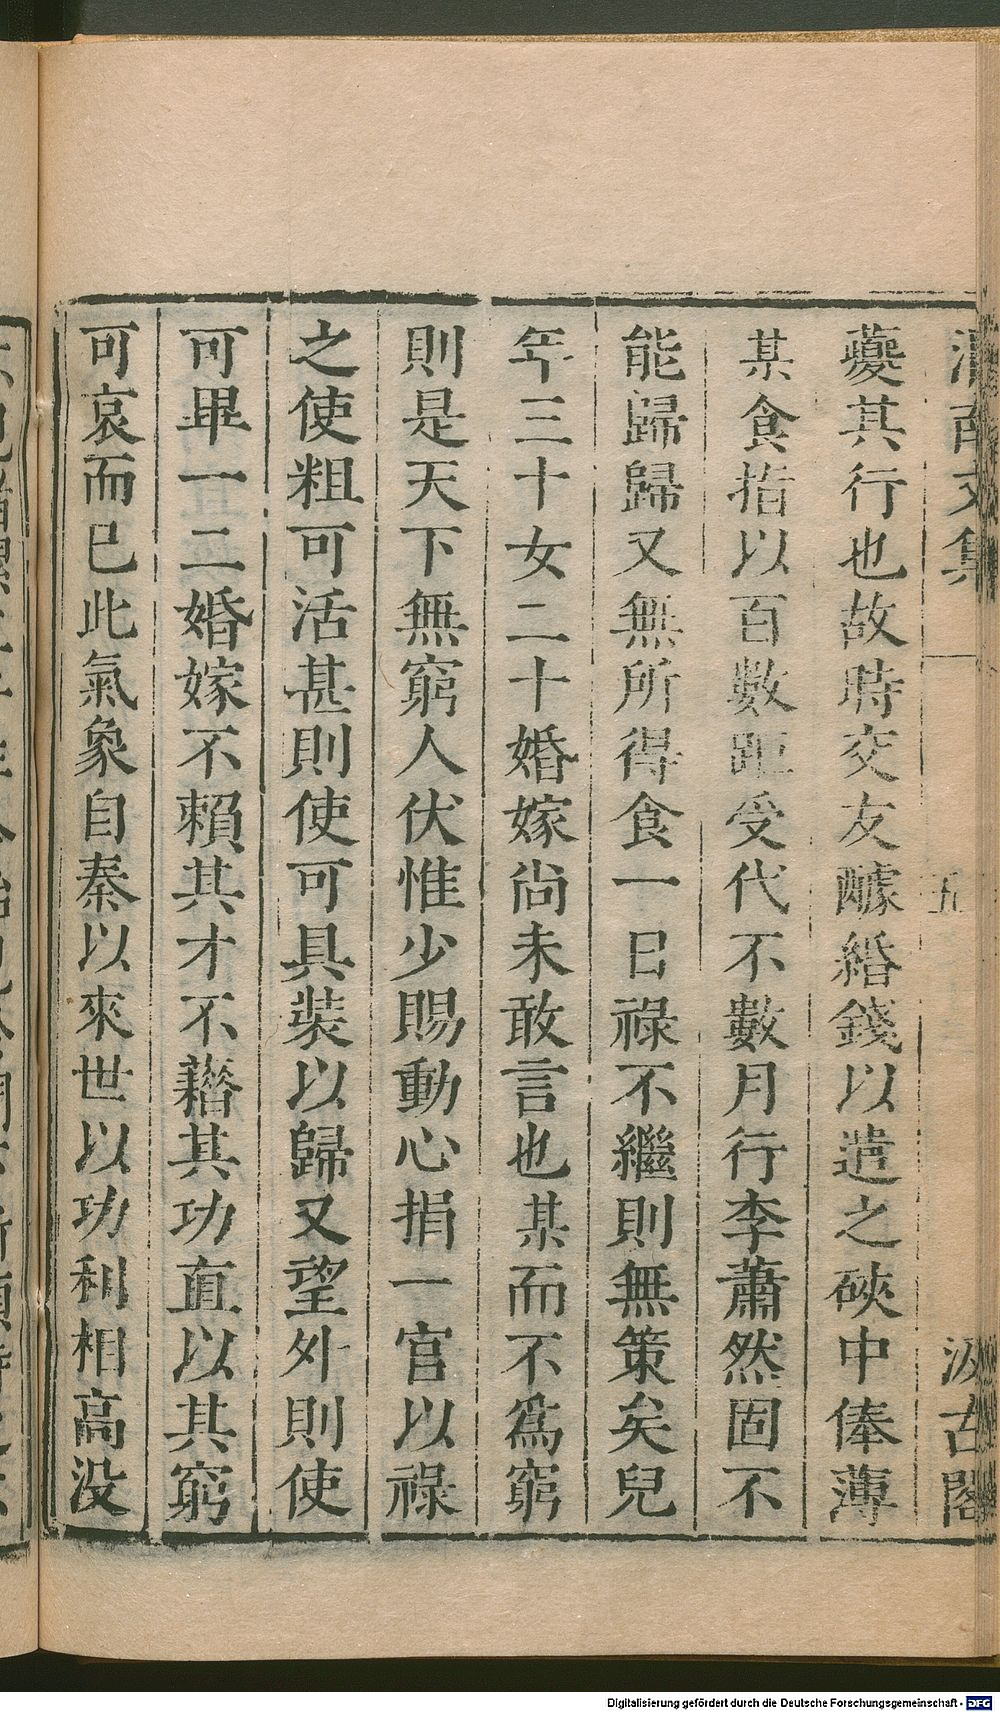 渭南文集 五 汲古閣
夔其行也故時交友醵緡錢以遣之硤中俸薄
某食指以百數距受代不數月行李蕭然固不
能歸歸又無所得食一日祿不繼則無策矣兒
年三十女二十婚嫁尚未敢言也某而不爲窮
則是天下無窮人伏惟少賜動心捐一官以祿
之使粗可活甚則使可具裝以歸又望外則使
可畢一二婚嫁不賴其才不藉其功直以其窮
可哀而已此氣象自秦以來世以功利相高没
Digitalisierung gefördert durch die Deutsche Forschungsgemeinschaft - DFG